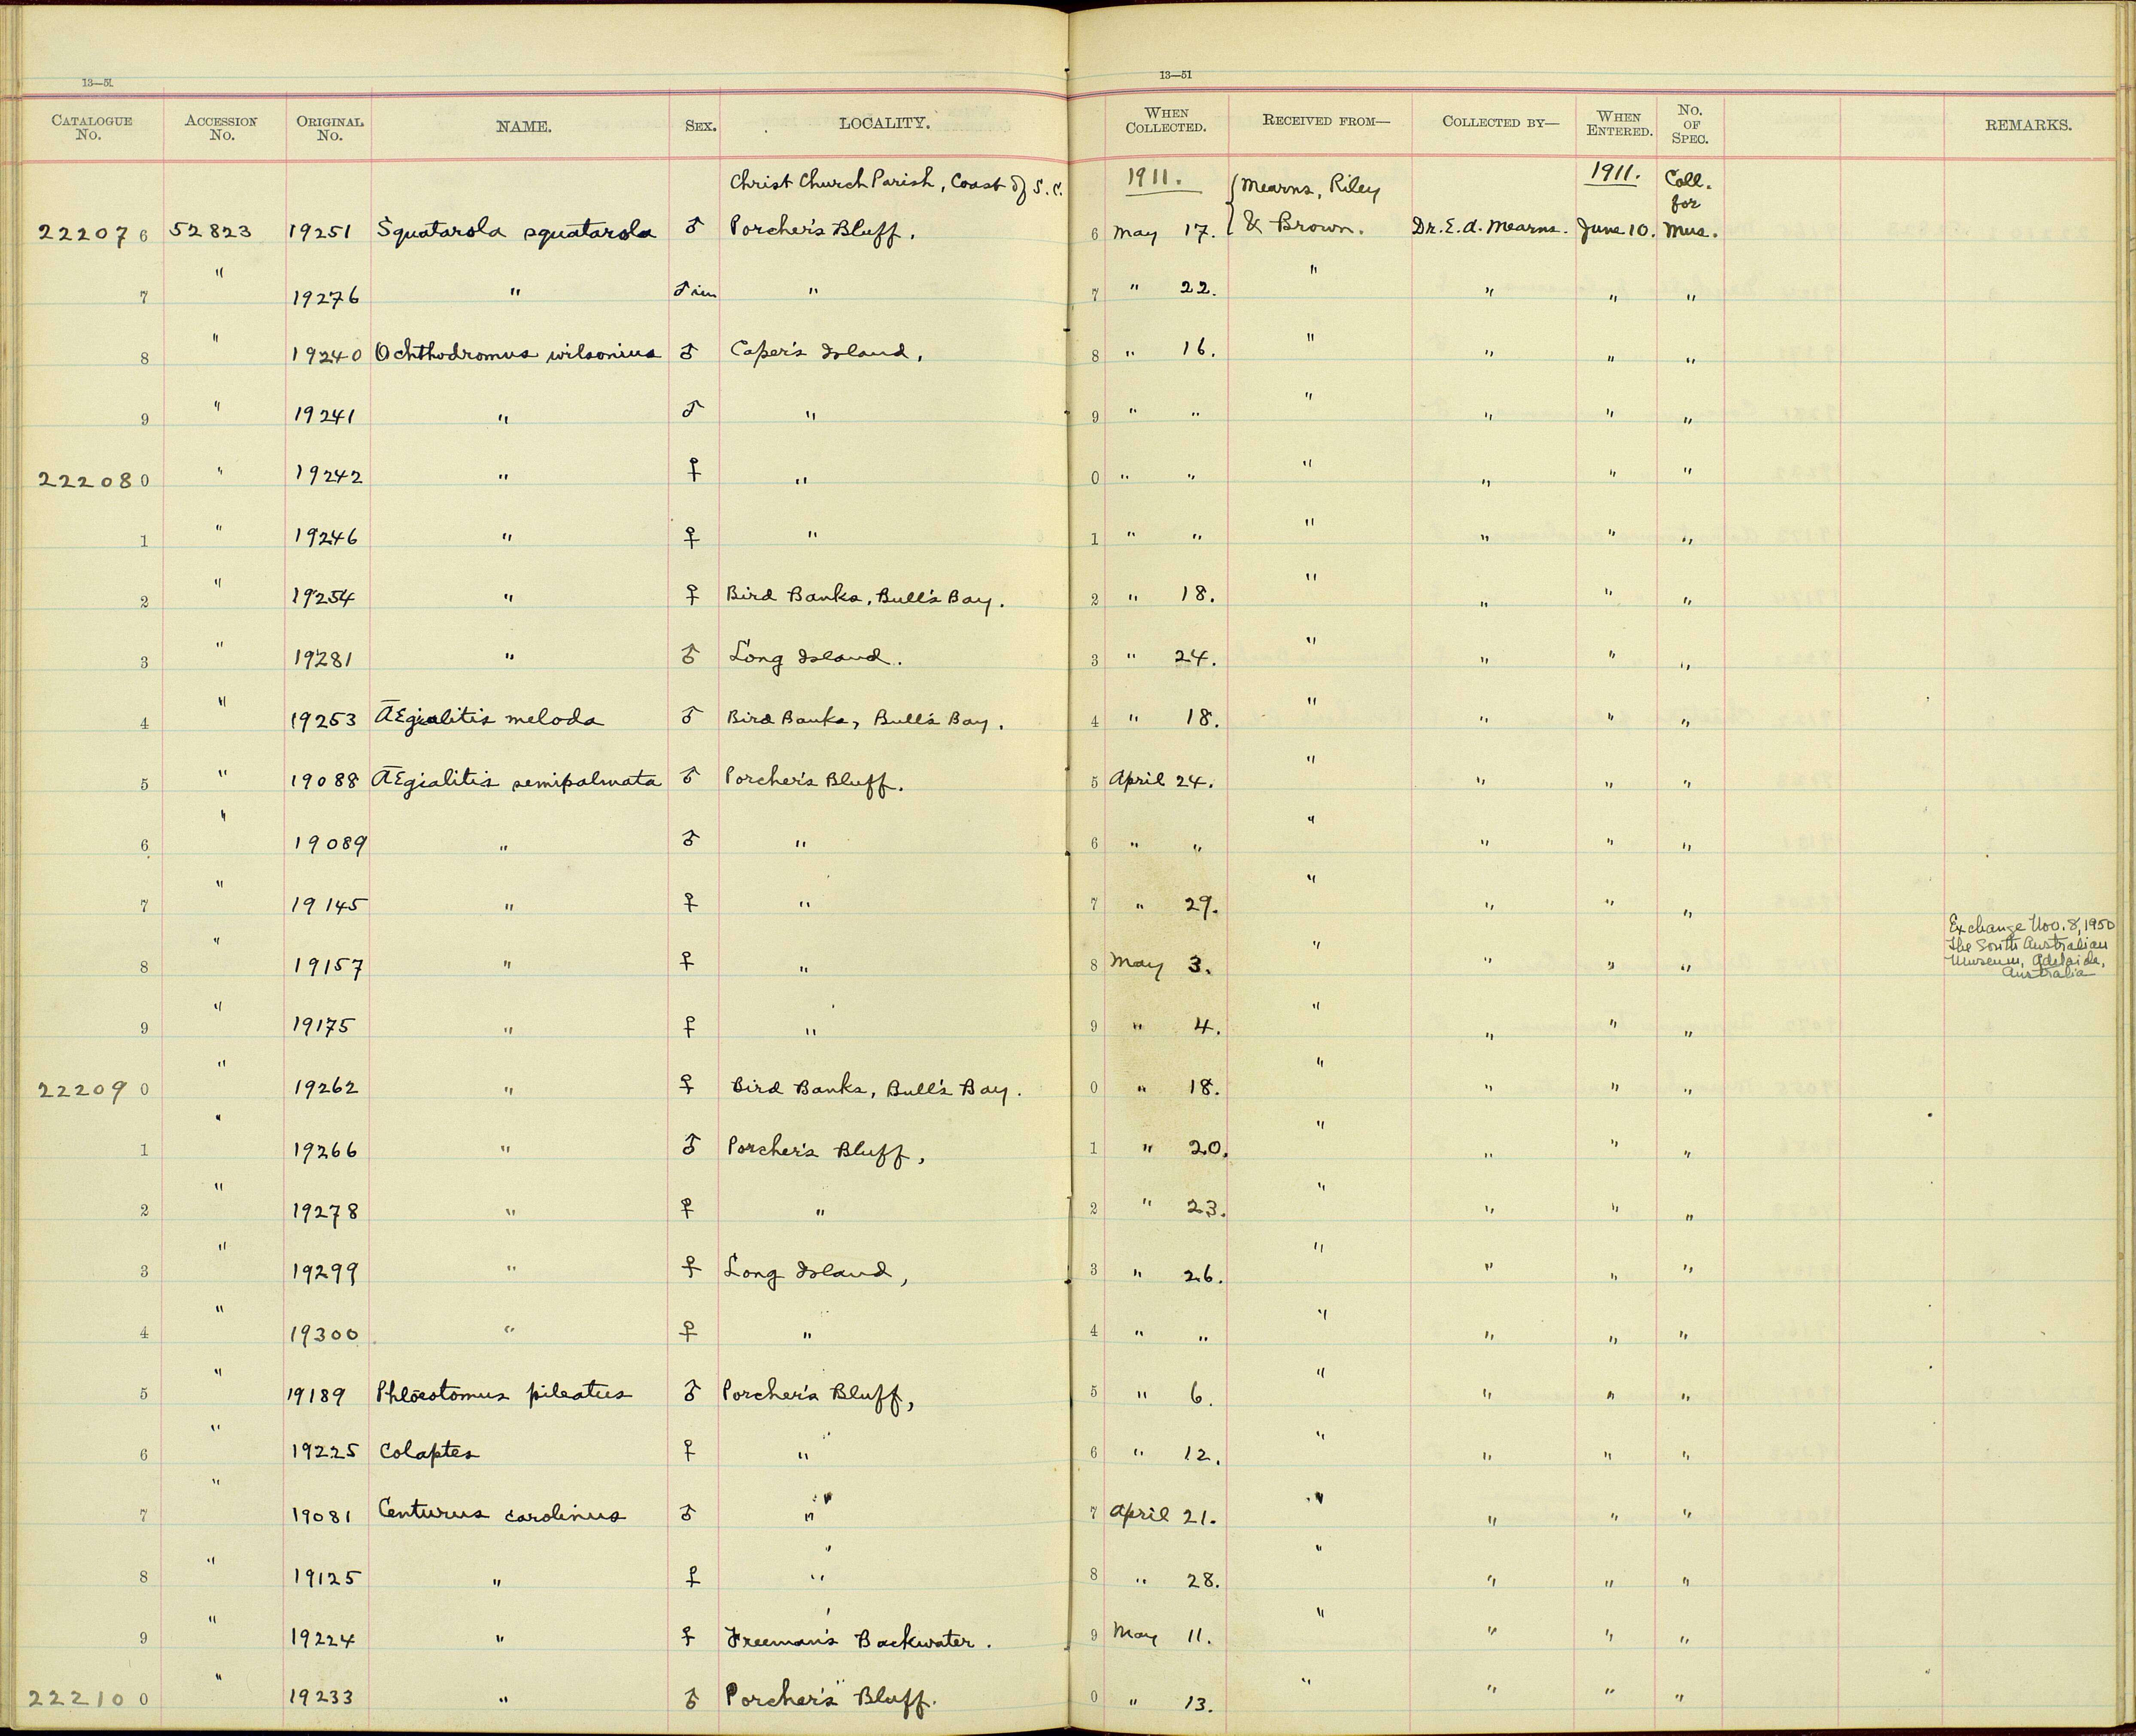 13—51 13—51
CATALOGUE No. ACCESSION No. ORIGINAL No. NAME. SEX. LOCALITY. WHEN COLLECTED. RECEIVED FROM— COLLECTED BY— WHEN ENTERED. No. OF SPEC. REMARKS.
Christ Church Parish, Coast of S.C. 1911. Mearns, Riley 1911. Coll. for
222076 52823 19251 Squatarola squatarola ♂ Porcher's Bluff. 6 May 17. & Brown. Dr. E. A. Mearns. June 10. Mus.
7 " 19276 " ♂ im " 7 " 22. " " " "
8 " 19240 Ochthodromus wilsonius ♂ Caper's Island, 8 " 16. " " " "
9 " 19241 " ♂ " 9 " " " " " "
222080 " 19242 " ♀ " 0 " " " " " "
1 " 19246 " ♀ " 1 " " " " " "
2 " 19254 " ♀ Bird Banks, Bull's Bay. 2 " 18. " " " "
3 " 19281 " ♂ Long Island. 3 " 24. " " " "
4 " 19253 Ægialitis meloda ♂ Bird Banks, Bull's Bay. 4 " 18. " " " "
5 " 19088 Ægialitis semipalmata ♂ Porcher's Bluff. 5 April 24. " " " "
6 " 19089 " ♂ " 6 " " " " " "
7 " 19145 " ♀ " 7 " 29. " " " "
8 " 19157 " ♀ " 8 May 3. " " " " Exchange Nov. 8, 1950
The South Australian
Museum, Adelaide,
Australia
9 " 19175 " ♀ " 9 " 4. " " " "
222090 " 19262 " ♀ Bird Banks, Bull's Bay. 0 " 18. " " " "
1 " 19266 " ♂ Porcher's Bluff, 1 " 20. " " " "
2 " 19278 " ♀ " 2 " 23. " " " "
3 " 19299 " ♀ Long Island, 3 " 26. " " " "
4 " 19300 " ♀ " 4 " " " " " "
5 " 19189 Phlœotomus pileatus ♂ Porcher's Bluff, 5 " 6. " " " "
6 " 19225 Colaptes ♀ " 6 " 12. " " " "
7 " 19081 Centurus carolinus ♂ " 7 April 21. " " " "
8 " 19125 " ♀ " 8 " 28. " " " "
9 " 19224 " ♀ Freeman's Backwater. 9 May 11. " " " "
222100 " 19233 " ♂ Porcher's Bluff. 0 " 13. " " " "